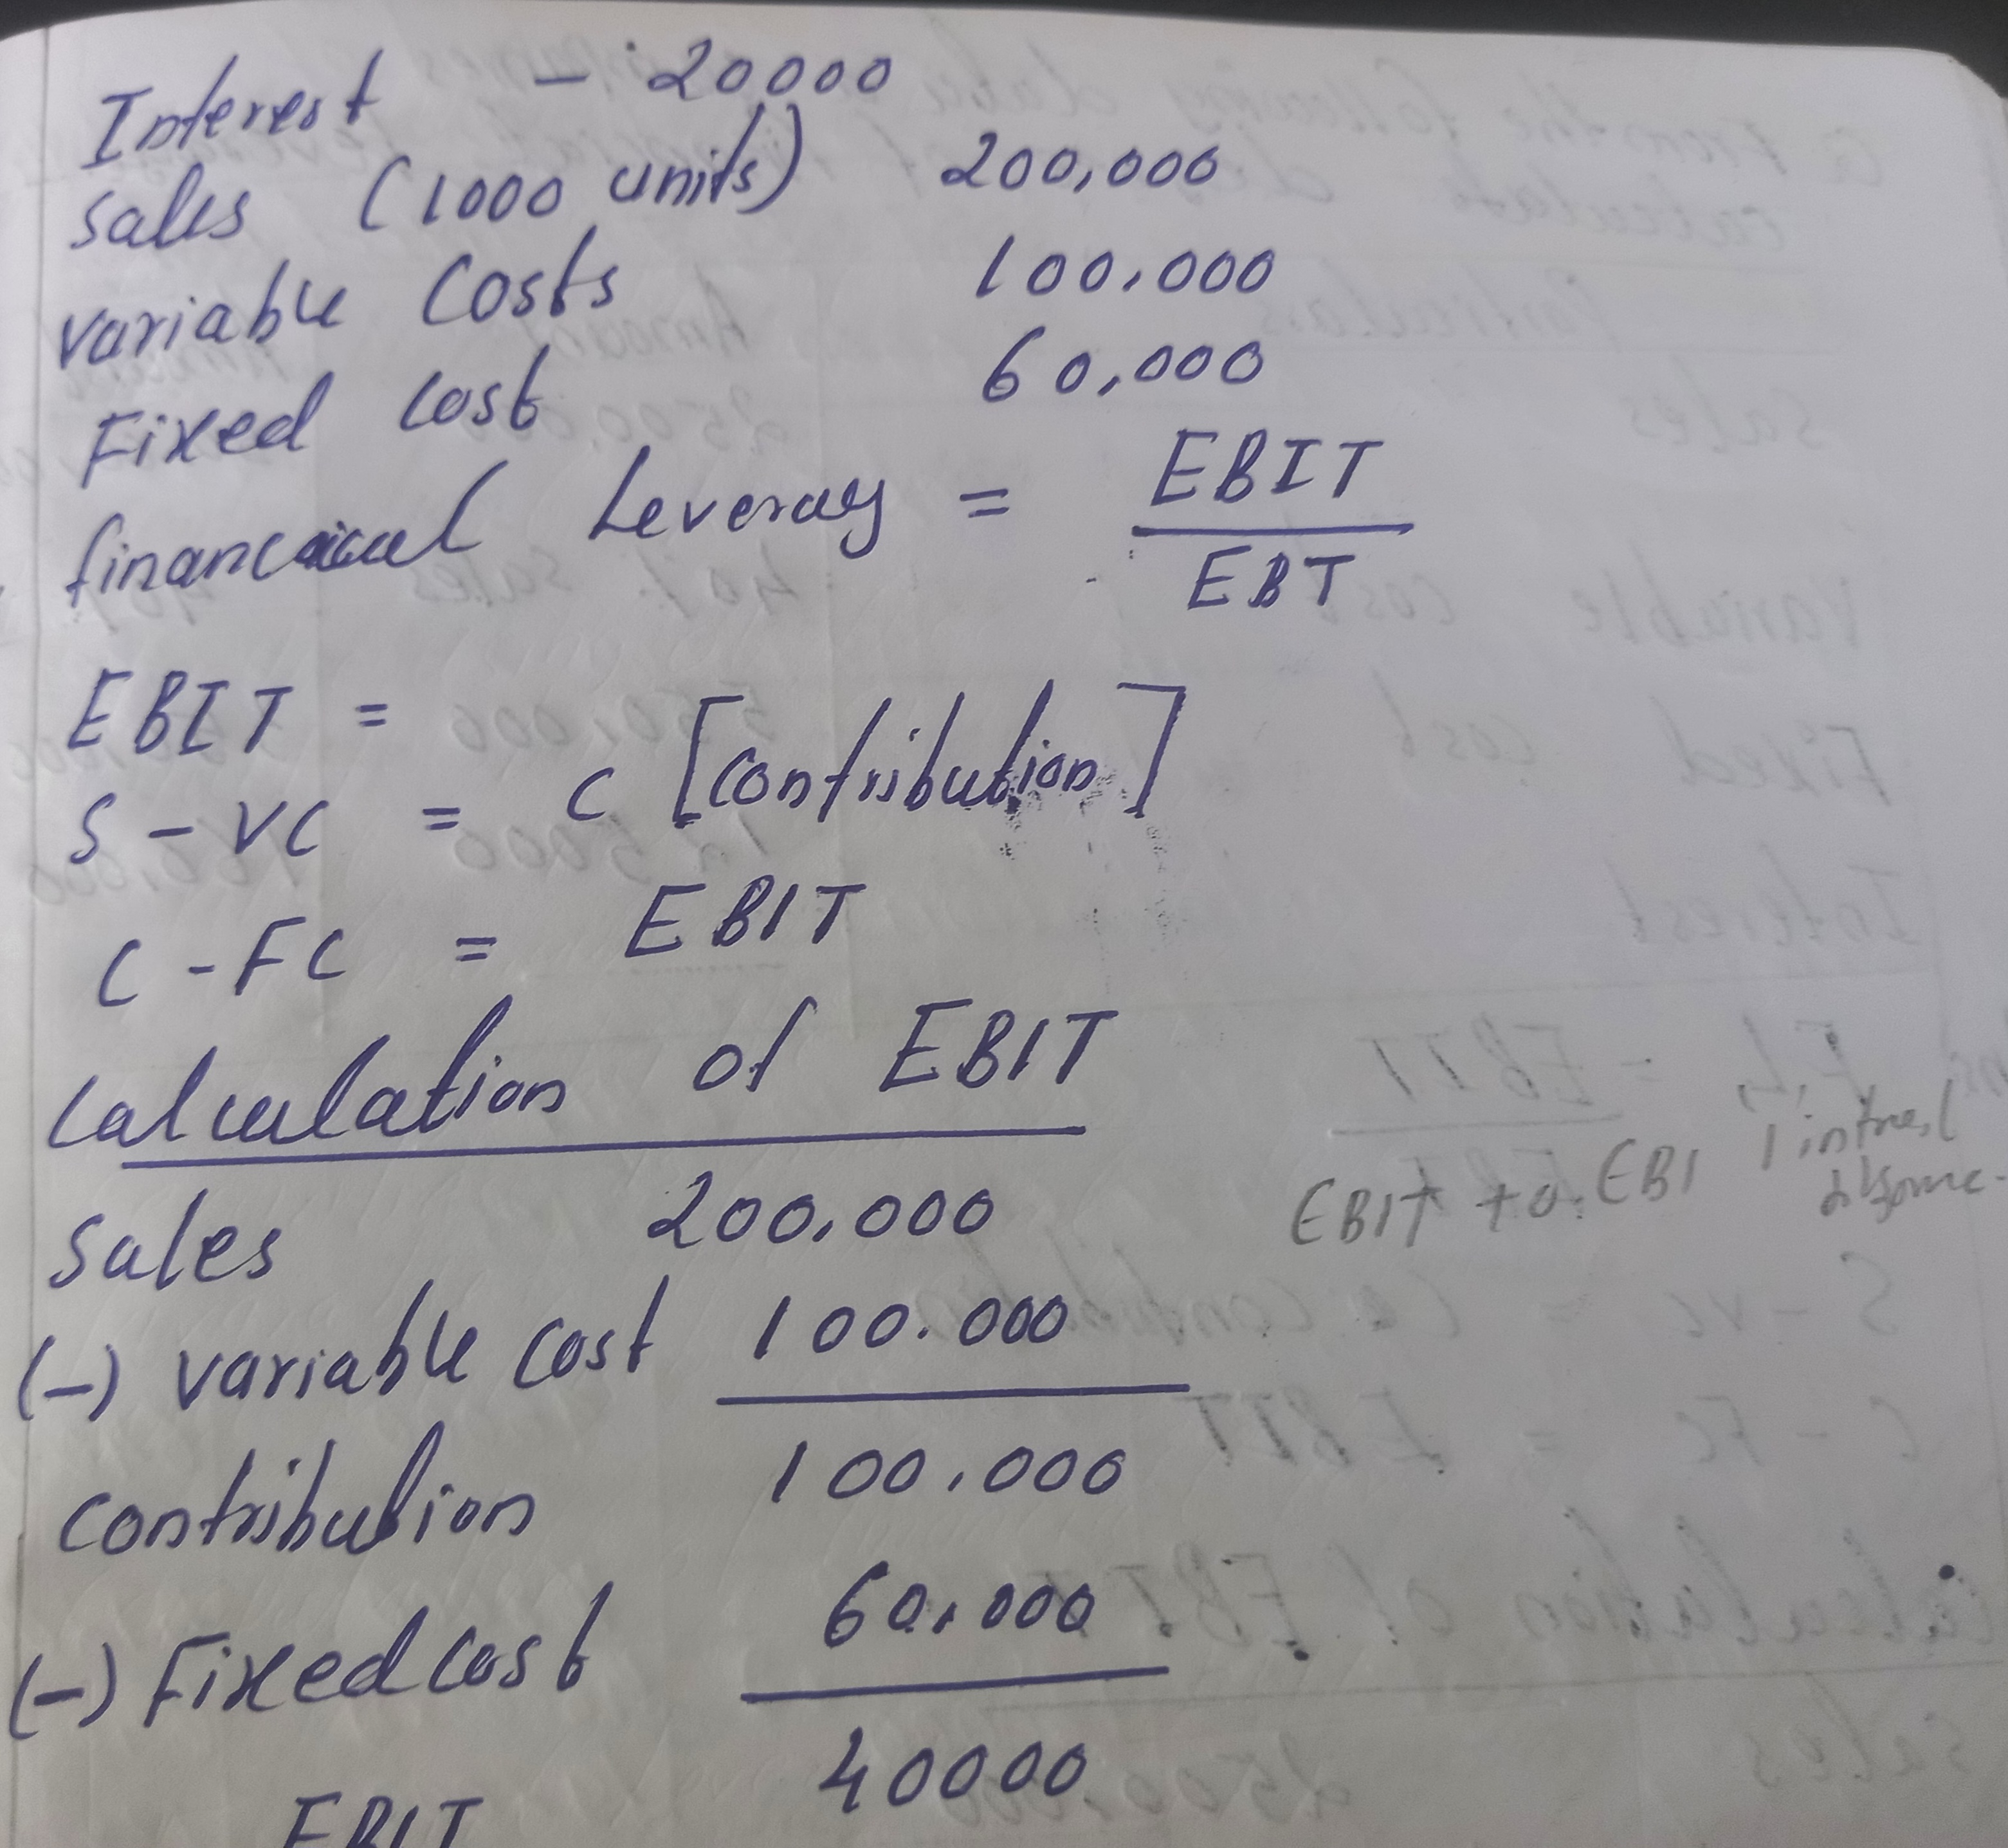 Interest - 20000
Sales (1000 units) 200,000
variable Costs 100,000
Fixed cost 60,000
financial Leveray = EBIT
EBT
EBIT =
S - VC = C [contribution]
C - FC = EBIT
Calculation of EBIT
EBIT to EBI
Sales 200,000
(-) variable cost 100.000
contribution 100,000
(-) Fixed cost 60,000
40000
EBIT